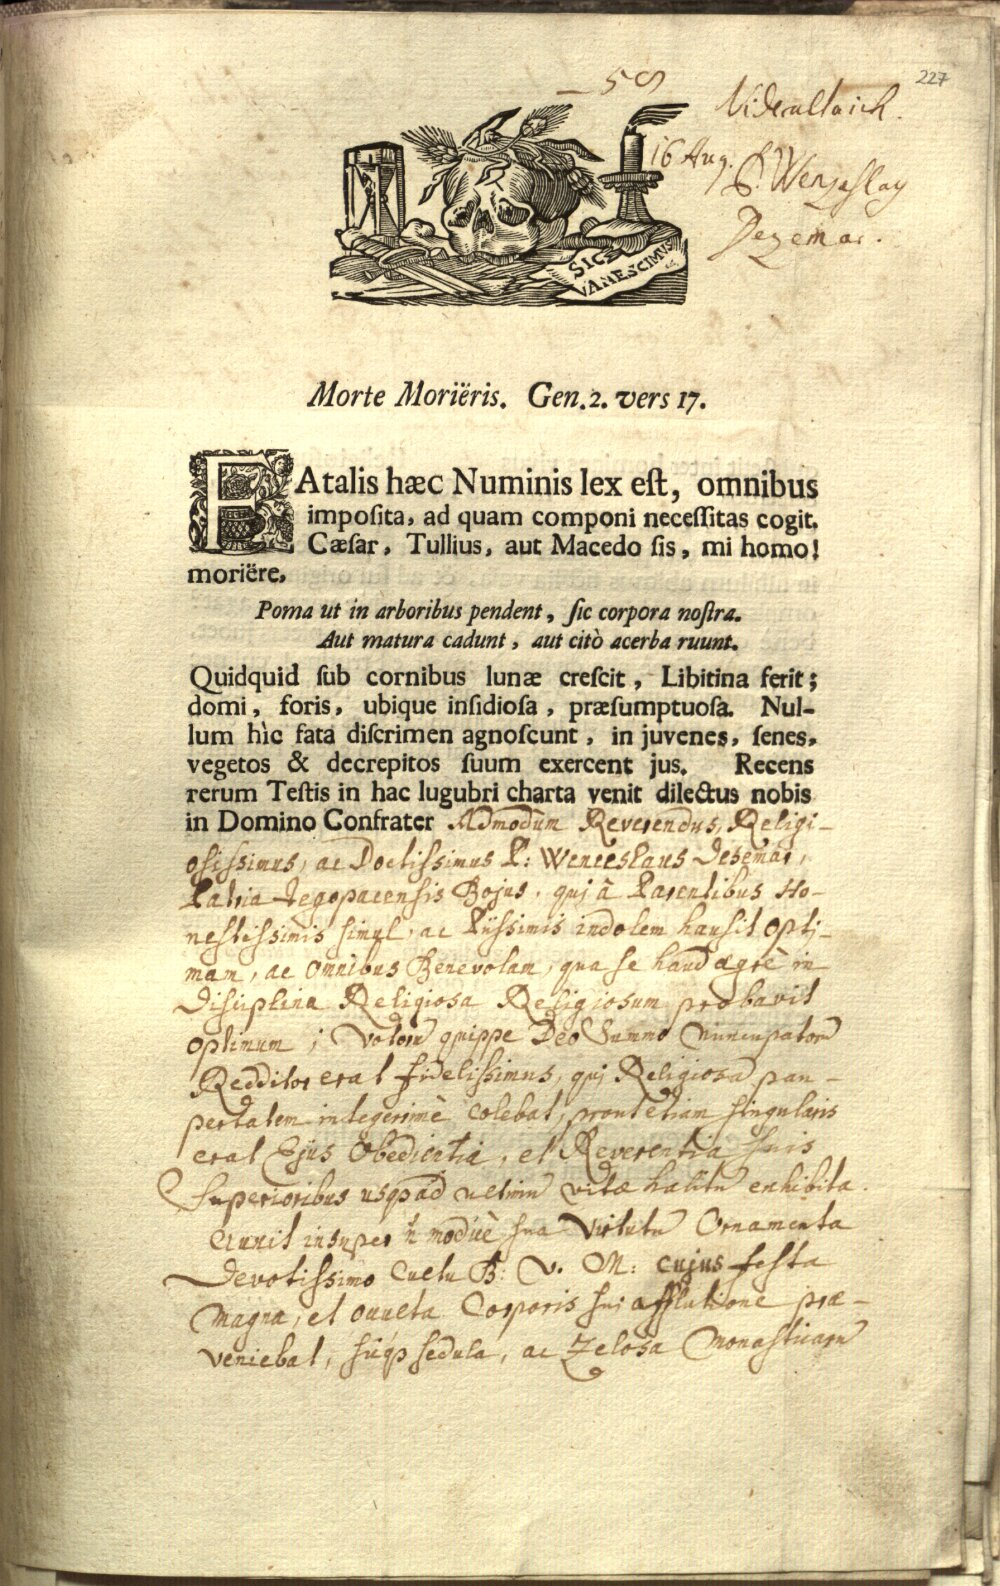 227
Niderallaich.
16 Aug. P. Wenzeslaus
Dezemar.
SIC
VANESCIMUS
Morte Moriëris. Gen. 2. vers 17.
FAtalis hæc Numinis lex eſt, omnibus
impoſita, ad quam componi neceſſitas cogit.
Cæſar, Tullius, aut Macedo ſis, mi homo!
moriëre,
Poma ut in arboribus pendent, ſic corpora noſtra.
Aut matura cadunt, aut citò acerba ruunt.
Quidquid ſub cornibus lunæ creſcit, Libitina ferit;
domi, foris, ubique inſidioſa, præſumptuoſa. Nul-
lum hìc fata diſcrimen agnoſcunt, in juvenes, ſenes,
vegetos & decrepitos ſuum exercent jus. Recens
rerum Teſtis in hac lugubri charta venit dilectus nobis
in Domino Confrater Admodum Reverendus, Religi-
osissimus, ac Doctissimus P: Wenceslaus Desemar,
Patria Bojus, qui à Parentibus Ho-
nestissimis simul, ac Piissimis indolem hausit opti-
mam, ac omnibus Benevolam, qua se haud ægrè in
Disciplina Religiosa Religiosum probavit
optimum; Votorū quippe Deo Summo nuncupatorū
Redditor erat fidelissimus, qui Religiosā pau-
pertatem integerrimè colebat, prout etiam singularis
erat Ejus Obedientia, et Reverentia suis
Superioribus usq ad ultimū vitæ halitū exhibita.
Auxit insuper sua Virtutū Ornamenta
Devotissimo Cultu B: V. M: cujus festa
magna, et Corporis sui præ-
veniebat, sedula, ac Zelosa Monasticarū